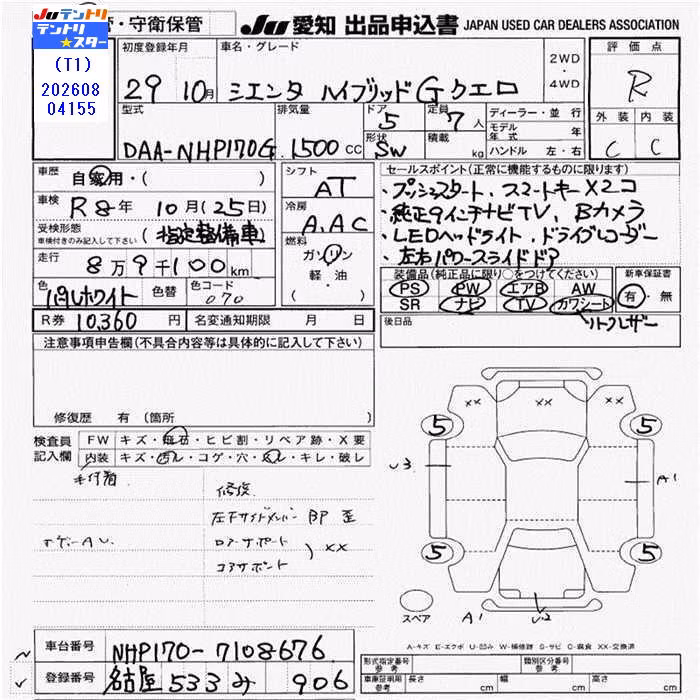 JUテントリ
テントリ★スター
(T1)
202608
04155
・守衛保管
JU 愛知 出品申込書 JAPAN USED CAR DEALERS ASSOCIATION
初度登録年月 車名・グレード 評価点
29 10月 シエンタ ハイブリッドG クエロ 2WD・4WD R
型式 排気量 ドア 5 定員 7人 ディーラー・並行 外装 内装
モデル年式 年
DAA-NHP170G 1500cc 形状 SW 積載 kg ハンドル 左・右 C C
車歴 自家用・( ) シフト AT セールスポイント(正常に機能するものに限ります)
車検 R8年 10月(25日) 冷房 A.AC ・プッシュスタート、スマートキー×2コ
受検形態 車検付きのみ記入して下さい (指定整備車) ・純正9インチナビTV、Bカメラ
走行 8万9千100km 燃料 ガソリン 軽・油 ・LEDヘッドライト、ドライブレコーダー
・左右パワースライドドア
色 パールホワイト 色替 色コード 070 装備品(純正品に限り○をつけてください) 新車保証書
PS PW エアB AW 有・無
SR ナビ TV カワシート
R券 10,360円 名変通知期限 月 日 後日品
注意事項申告欄(不具合内容等は具体的に記入して下さい)
修復歴 有(箇所
検査員記入欄 FW キズ・飛石・ヒビ割・リペア跡・X要
内装 キズ・汚ル・コゲ・穴・スレ・キレ・破レ
修復
XX
XX XX XX
5 5 5 5
U3 A1
A1 U2
スペア
A-キズ E-エクボ U-凹み W-補修跡 S-サビ C-腐食 XX-交換済
車台番号 NHP170-7108676
登録番号 名古屋 533 み 906
形式指定番号 参考 類別区分番号 参考
車庫証明用 参考 長さ cm 幅 cm 高さ cm